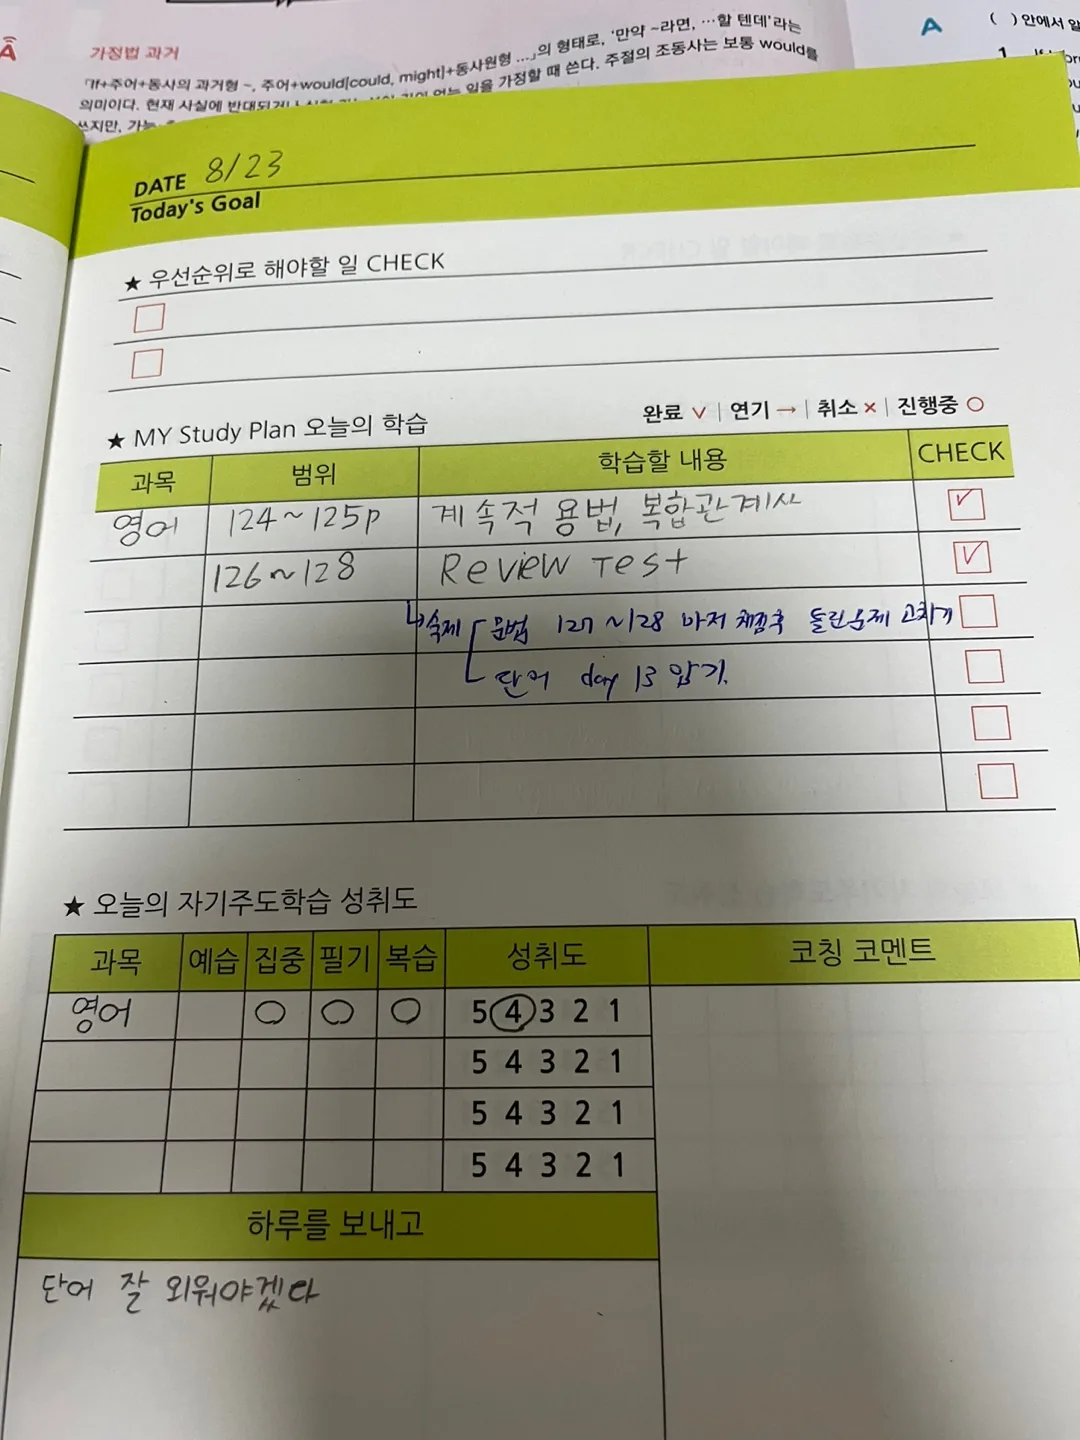 가정법 과거
「If+주어+동사의 과거형 ~, 주어+would[could, might]+동사원형 ...」의 형태로, '만약 ~라면, …할 텐데'라는
의미이다. 현재 사실에 반대되거나 일을 가정할 때 쓴다. 주절의 조동사는 보통 would를
쓰지만,
A
( ) 안에서 알
1
DATE 8/23
Today's Goal
★ 우선순위로 해야할 일 CHECK
★ MY Study Plan 오늘의 학습
완료 ∨ | 연기 → | 취소 × | 진행중 ○
과목 범위 학습할 내용 CHECK
영어 124~125p 계속적 용법, 복합관계사 ✓
126~128 Review Test ✓
↳숙제 문법 127~128 마저 채점후 틀린문제 고치기
단어 day 13 암기.
★ 오늘의 자기주도학습 성취도
과목 예습 집중 필기 복습 성취도 코칭 코멘트
영어 ○ ○ ○ 5 4 3 2 1
5 4 3 2 1
5 4 3 2 1
5 4 3 2 1
하루를 보내고
단어 잘 외워야겠다